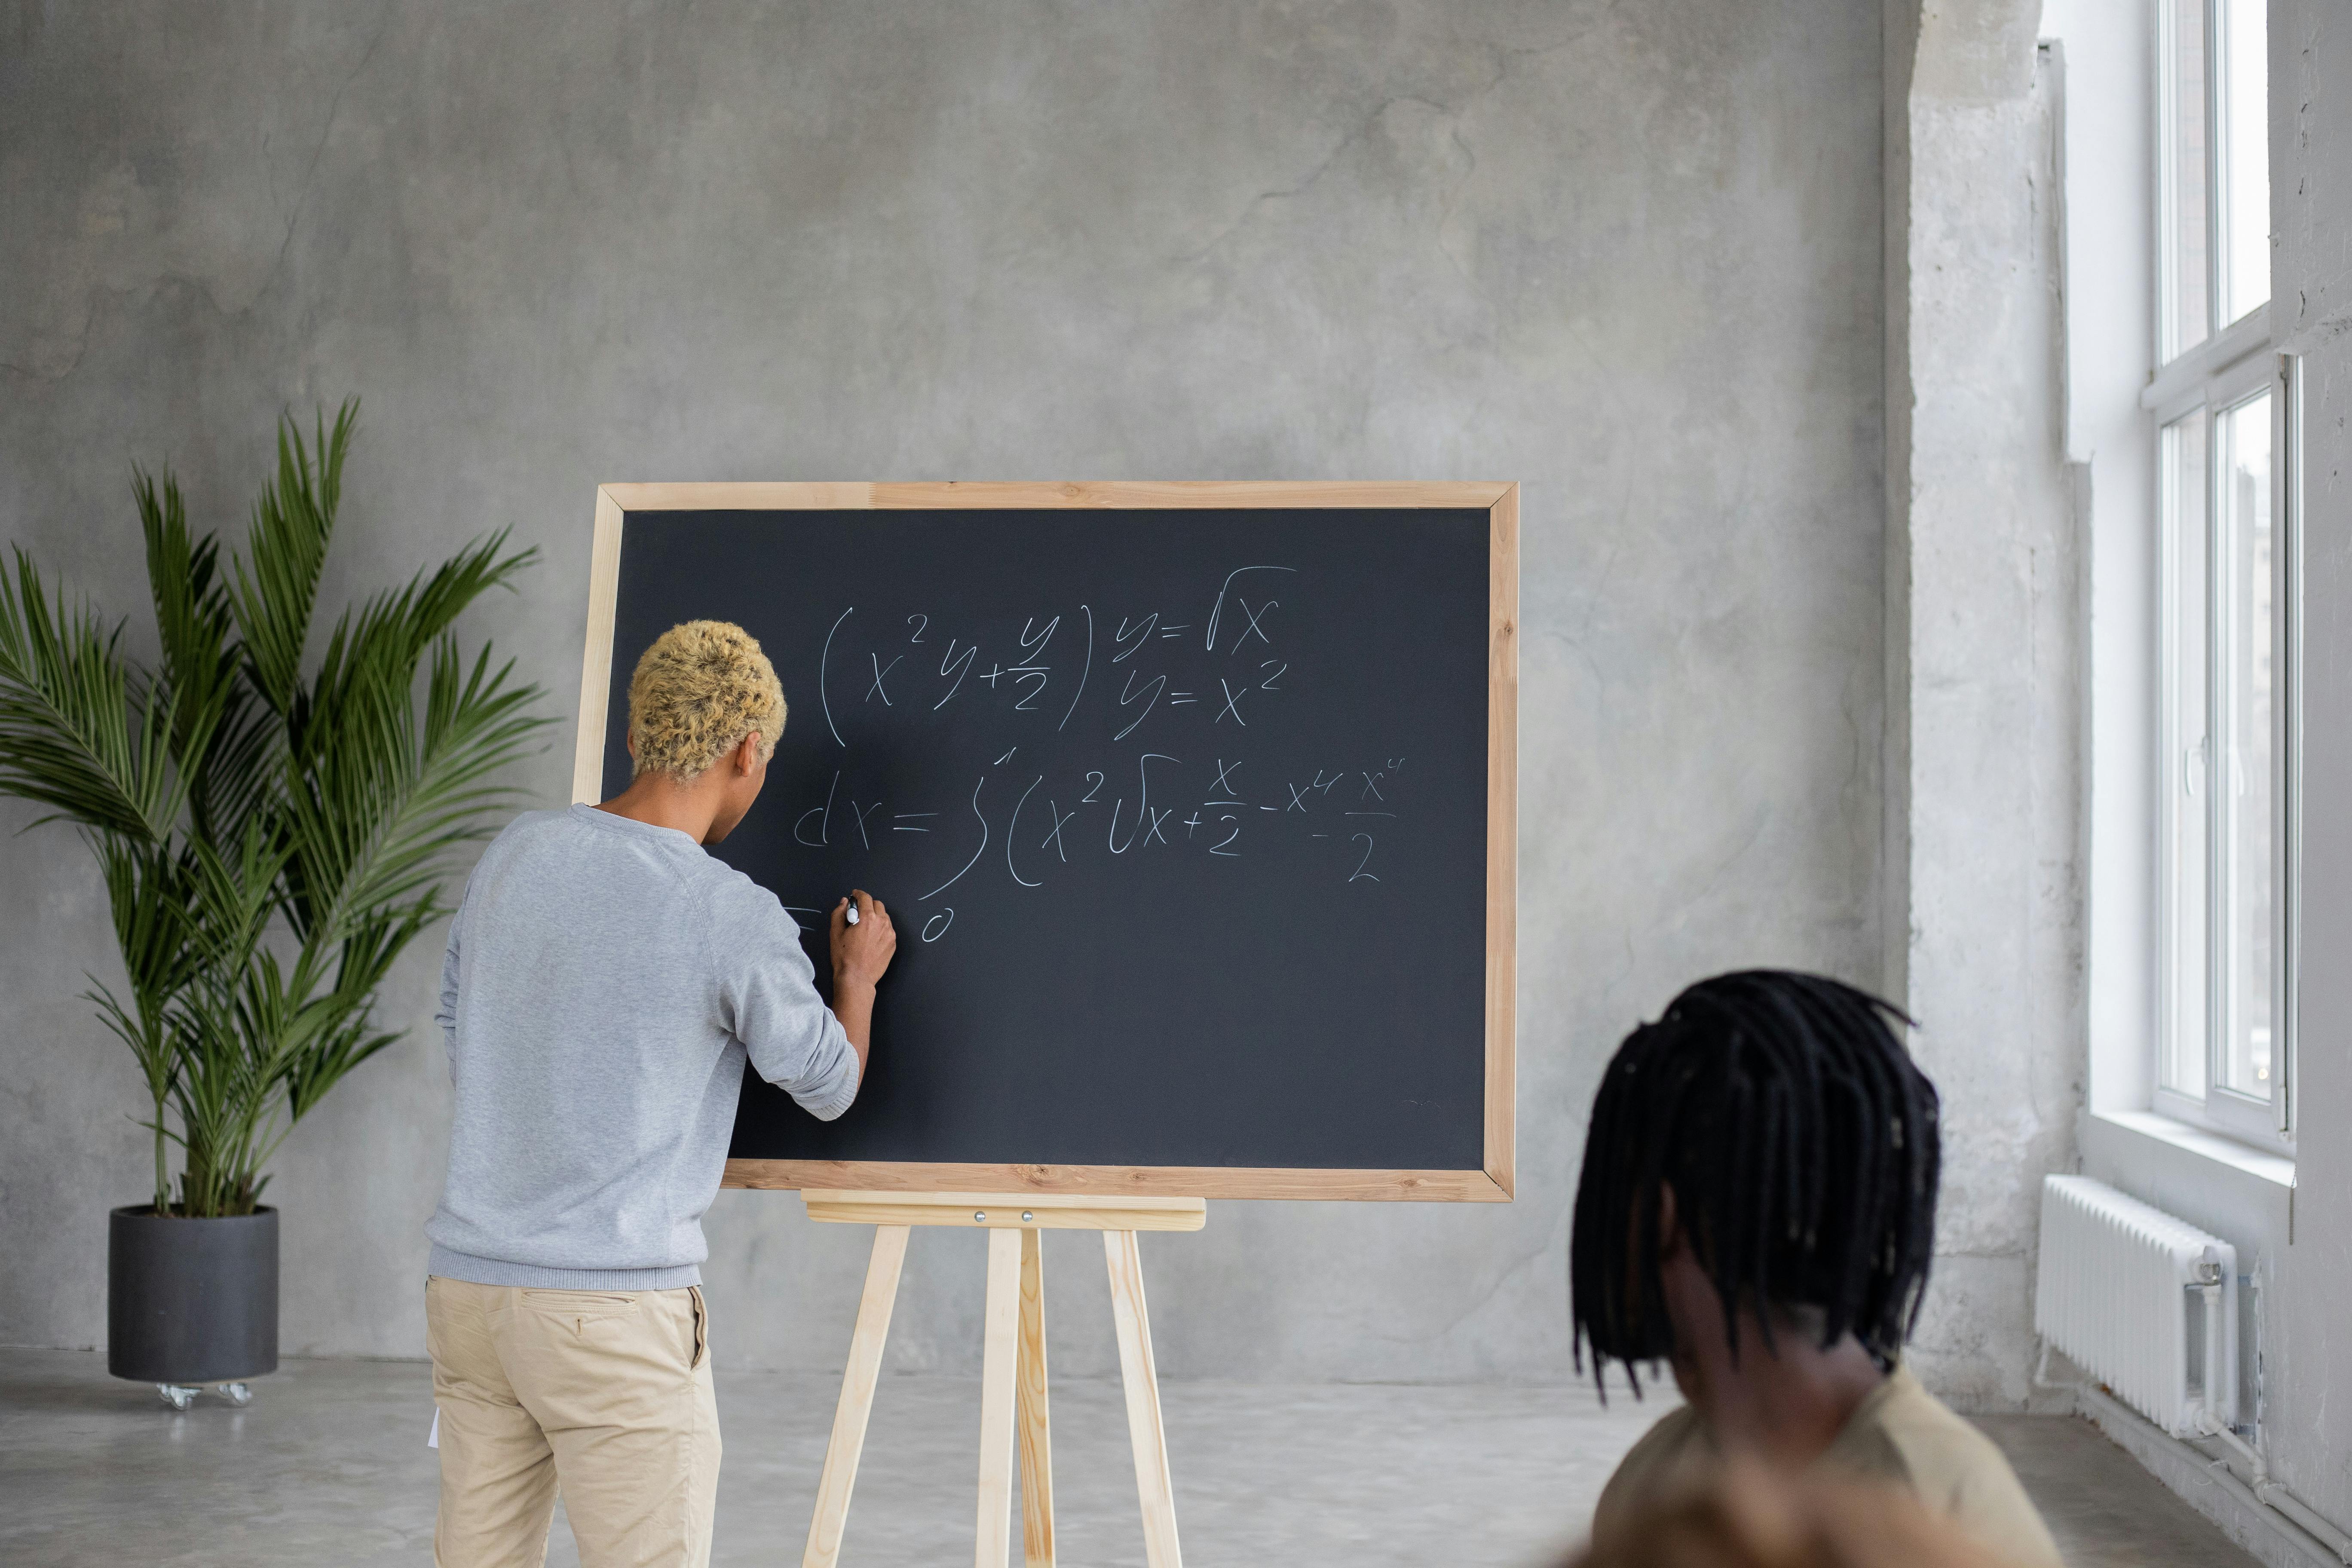 (x² y + y/2) y = √x
y = x²
dx = ∫₀¹ (x² √x + x/2 - x⁴ - x⁴/2
=